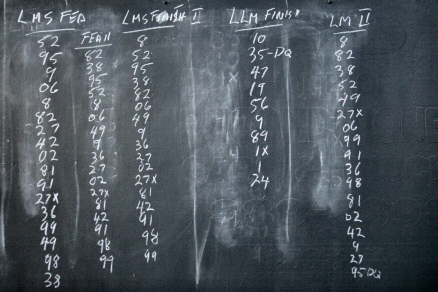 LMS FEA
52
95
9
06
8
82
27
42
02
81
91
27X
36
99
49
98
38
FEA II
82
38
95
52
8
06
49
9
36
27
02
27X
81
42
91
98
99
LMS FINISH II
8
52
95
38
82
06
49
9
36
27
02
27X
81
42
91
98
99
LLM FINISH
10
35-DQ
47
19
56
9
89
1X
1
24
LM II
8
82
38
52
49
27X
06
99
91
36
98
81
02
42
9
27
95DQ